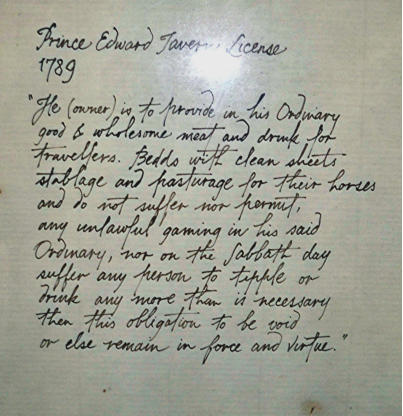 Prince Edward Tavern License
1789
"He (owner) is to provide in his Ordinary
good & wholesome meat and drink for
travellers. Beads with clean sheets
stablage and pasturage for their horses
and do not suffer nor permit,
any unlawful gaming in his said
Ordinary, nor on the Sabbath day
suffer any person to tipple or
drink any more than is necessary
then this obligation to be void
or else remain in force and virtue."